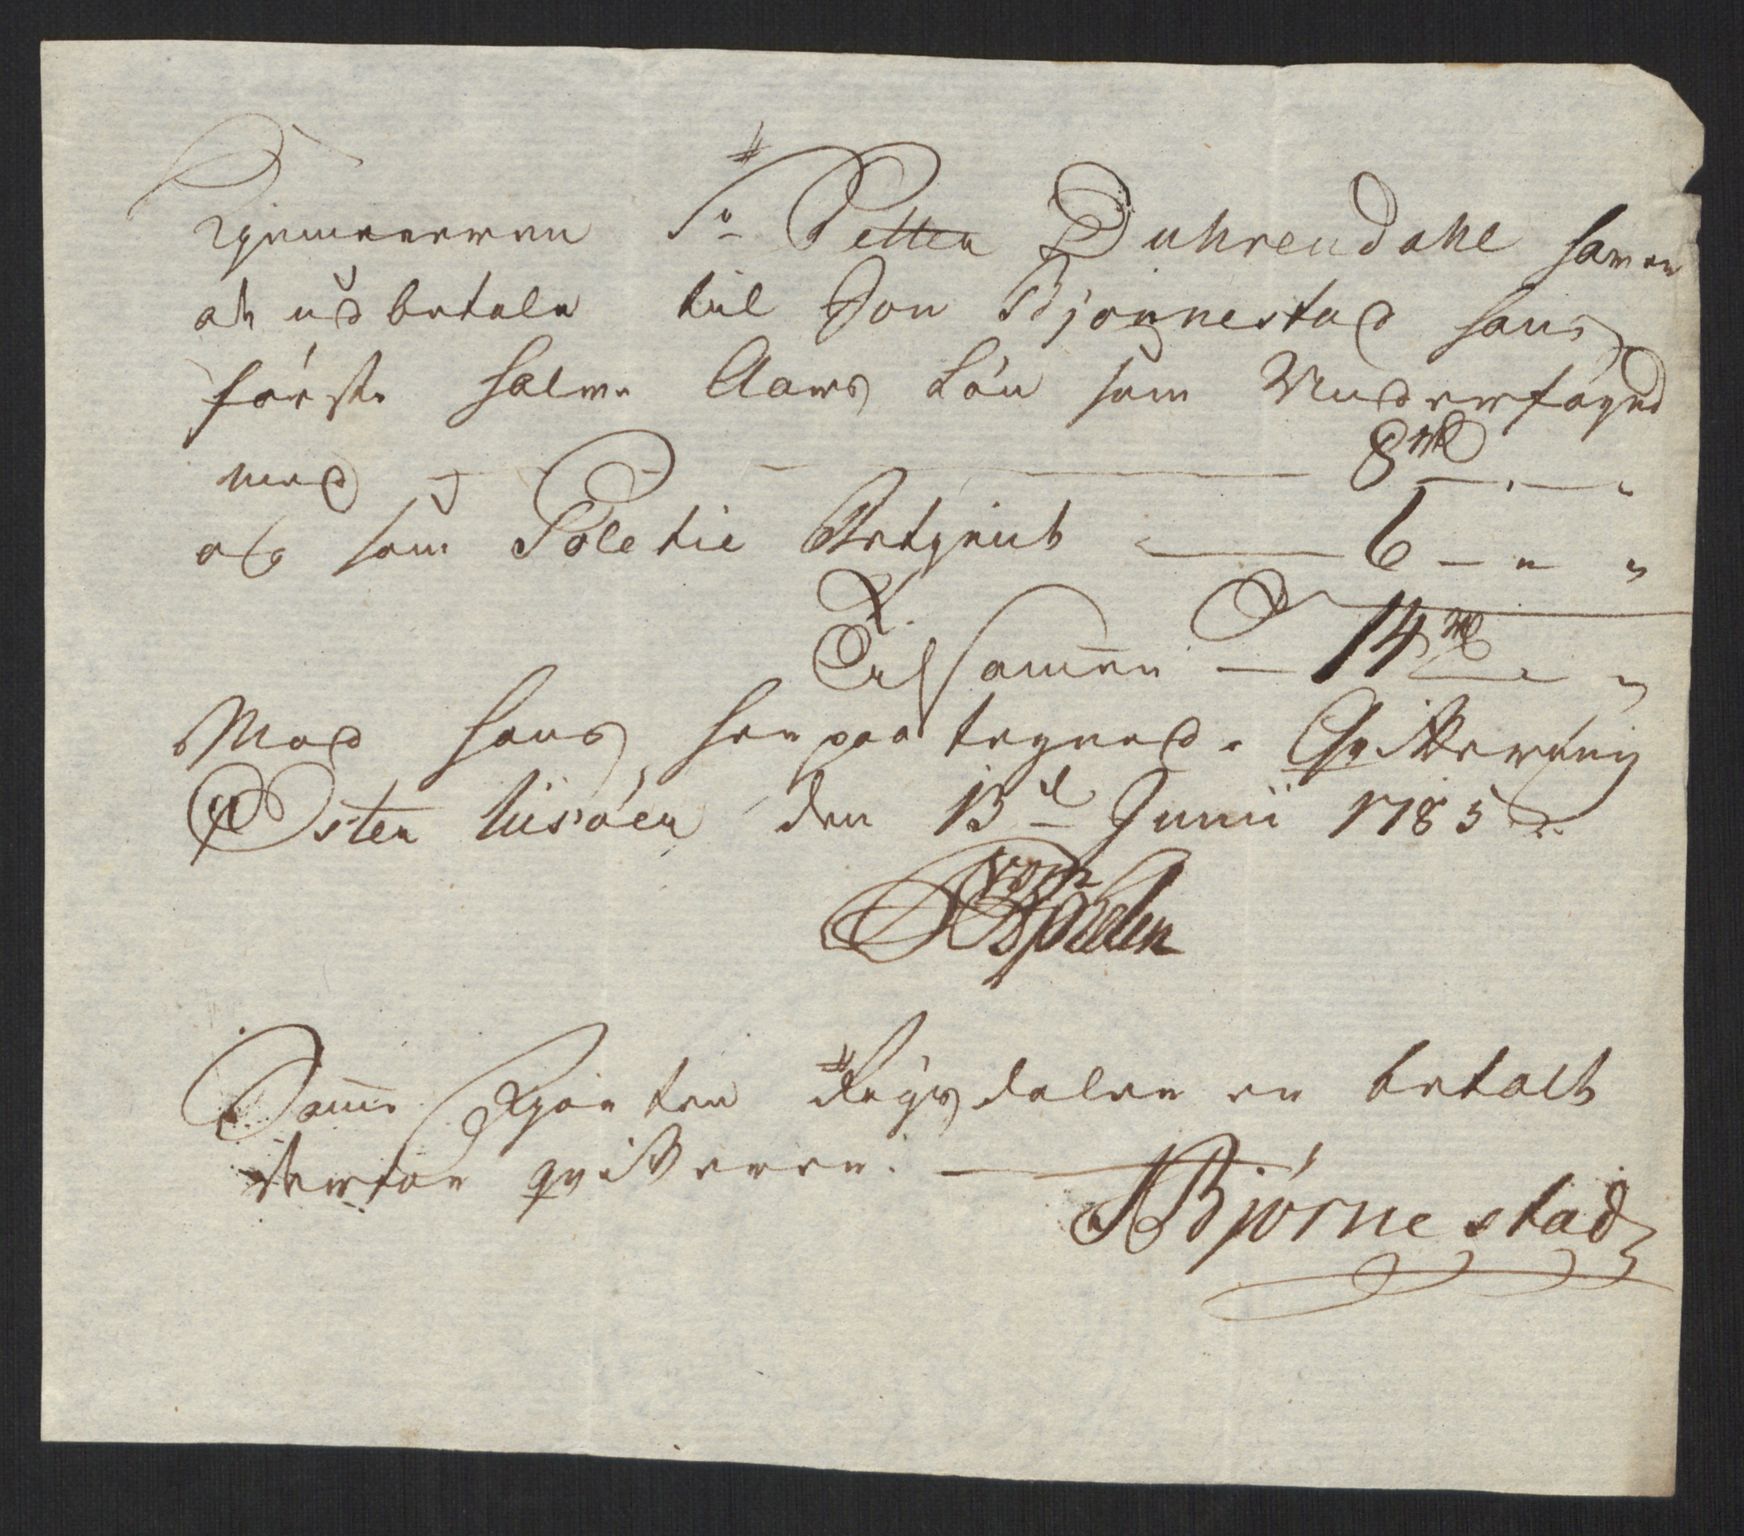 Kjemeneren Sr Petter Duhrendahl haver
at udbetale til Jon Bjønnestad hans
første halve Aars Løn som Underfoged
med 8 rd „
og som Poletie Betjent 6 „ „
Er Tilsamen 14 rd „ „
Mod hans herpaa tegnede Qvittering
Øster Riisøer den 13de Junii 1785

Same Fjorten Rigsdaler er betalt
derfor qvitterer.
J Bjørnestad